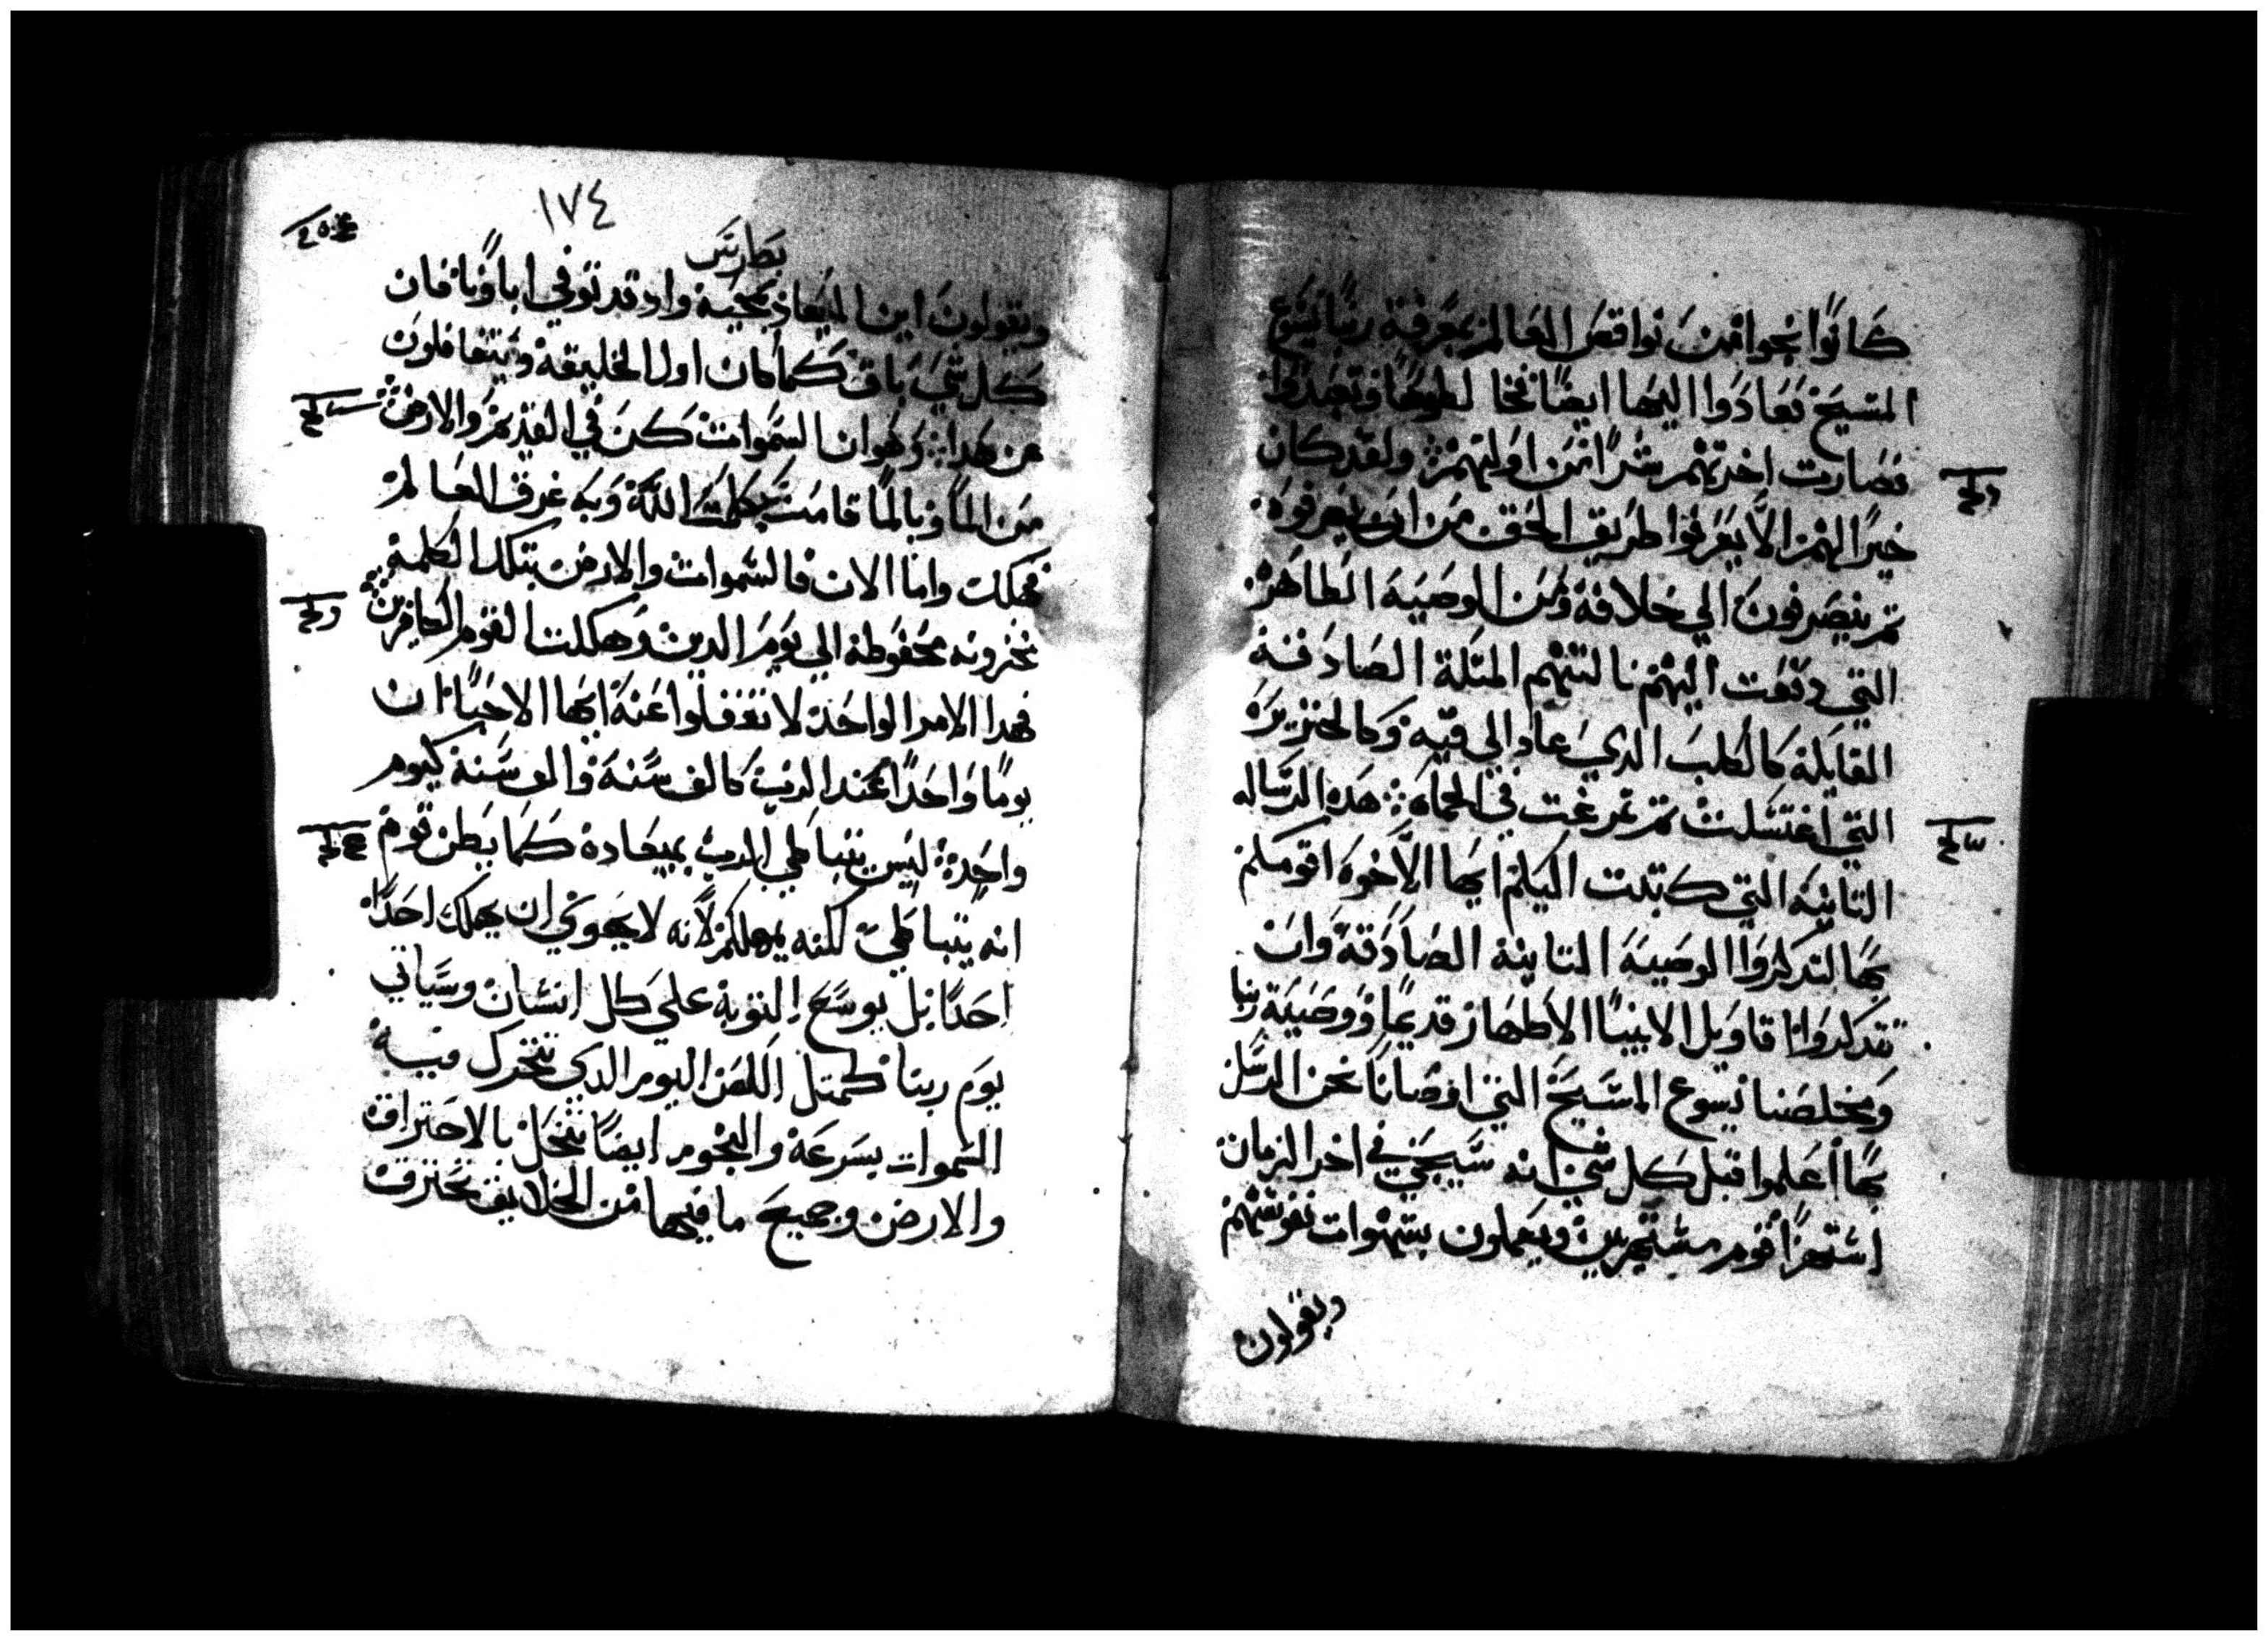 كانوا نجوا من نواقص العالم بمعرفة ربنا يسوع
المسيح فعادوا اليها ايضا فخالطوها وتعبدوا
فصارت اخرتهم شرا من اوليتهم ولقد كان
خيرا لهم الا يعرفوا طريق الحق من ان يعرفوه
تم ينصرفون الي خلافه ومن الوصية الطاهره
التي دفعت اليهم نالتهم المتلة الصادقة
القايلة كالكلب الدي عاد الي قيه وكالخنزيره
التي اغتسلت تم تمرغت في الحماه هده الرساله
التانية التي كتبت اليكم ايها الاخوه اقومكم
بها لتدكروا الوصية التانية الصادقة وان
تتدكروا اقاويل الانبيا الاطهار قديما ووصية ربنا
ومخلصنا يسوع المسيح التي اوصانا نحن الرسل
بها اعلموا قبل كل شي انه سيجي في اخر الزمان
استهزا قوم مستهزيين ويعملون بشهوات نفوسهم
ويقولون
١٧٤
بطارس
ويقولون اين الميعاد بمجيه واد قد توفي اباونا فان
كل شي باق كما كان اول الخليقة ويتغافلون
عن هدا وهو ان السموات كن في القديم والارض
من الما وبالما قامت بكلمة الله وبه غرق العالم
فهلك واما الان فالسموات والارض بتلك الكلمة
مخزونه محفوظة الي يوم الدين وهلكت القوم الكافرين
فهدا الامر الواحد لا تغفلوا عنه ايها الاحبا ان
يوما واحدا عند الرب كالف سنة والف سنة كيوم
واحد ليس يتباطي الرب بميعاده كما يظن قوم
انه يتباطي لكنه يمهلكم لانه لا يهوي ان يهلك احدا
احدا بل يوسع التوبة علي كل انسان وسياتي
يوم ربنا كمتل اللص اليوم الدي تتحرك فيه
السموات بسرعة والنجوم ايضا تنحل بالاحتراق
والارض وجميع ما فيها من الخلايق تحترق